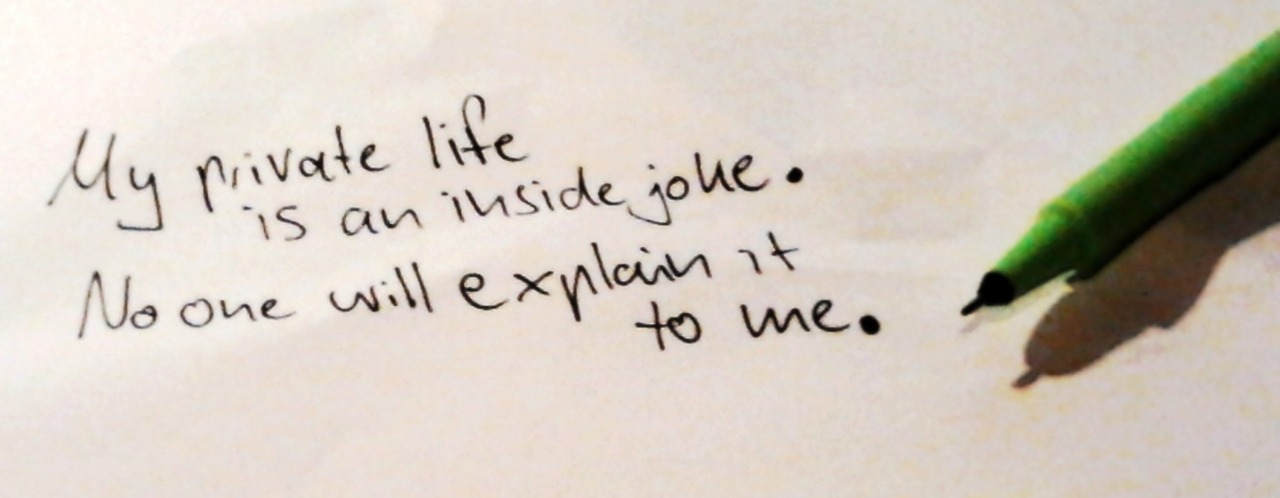 My private life
is an inside joke.
No one will explain it
to me.